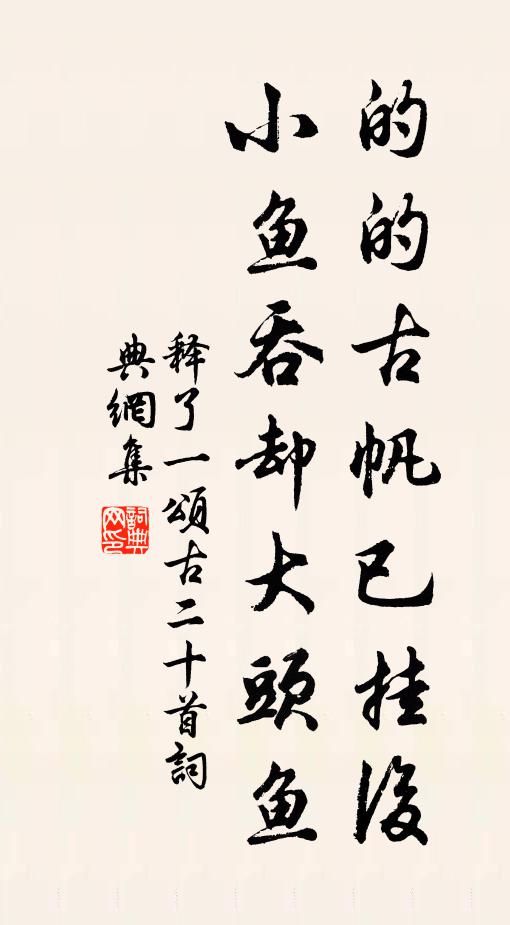 的的古帆已挂後
小鱼吞却大頭鱼
释了一頌古二十首詞
典網集
詞典网印